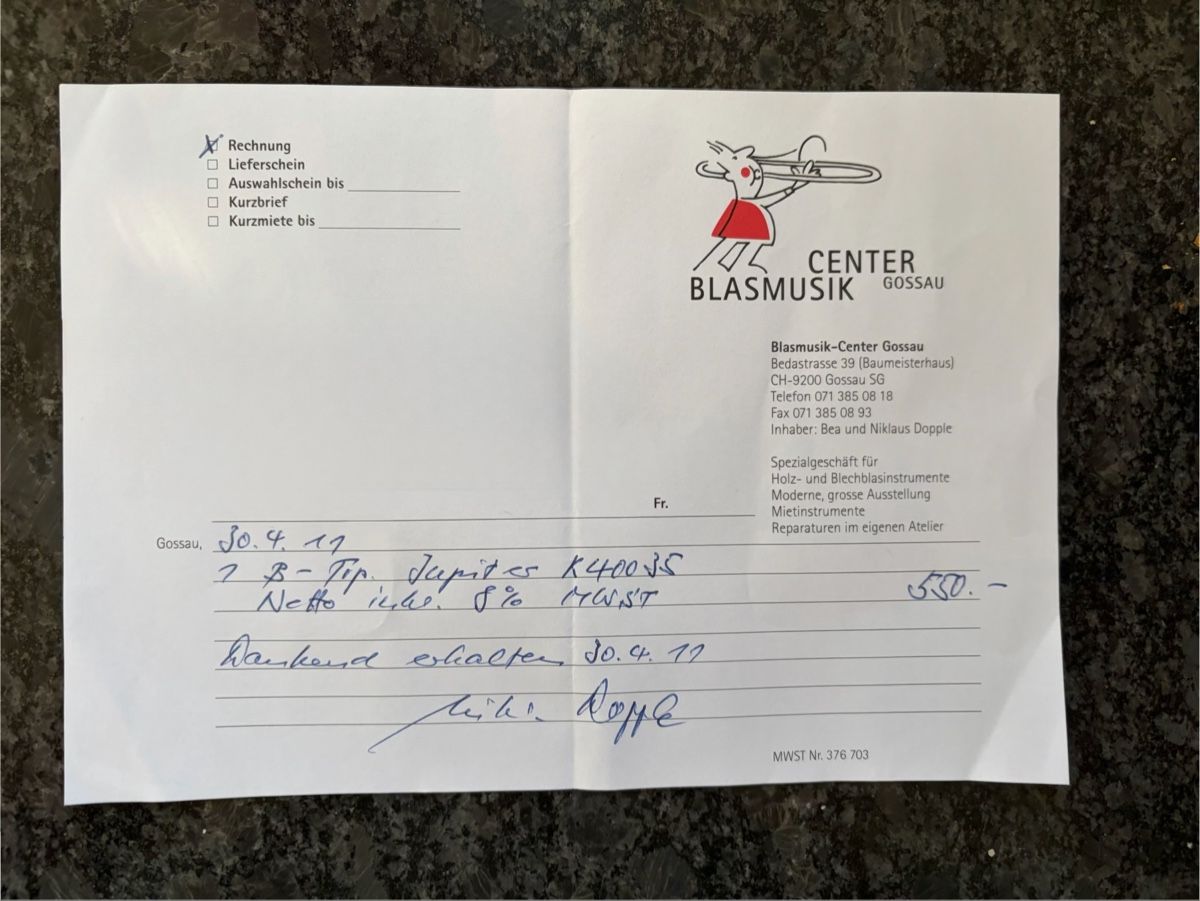 Rechnung
Lieferschein
Auswahlschein bis
Kurzbrief
Kurzmiete bis
CENTER
BLASMUSIK GOSSAU
Blasmusik-Center Gossau
Bedastrasse 39 (Baumeisterhaus)
CH-9200 Gossau SG
Telefon 071 385 08 18
Fax 071 385 08 93
Inhaber: Bea und Niklaus Dopple
Spezialgeschäft für
Holz- und Blechblasinstrumente
Moderne, grosse Ausstellung
Mietinstrumente
Reparaturen im eigenen Atelier
Fr.
Gossau, 30.4.11
1 B-Trp. Jupiter K40035
Netto inkl. 8% MWST 550.-
Dankend erhalten 30.4.11
Dopple
MWST Nr. 376 703